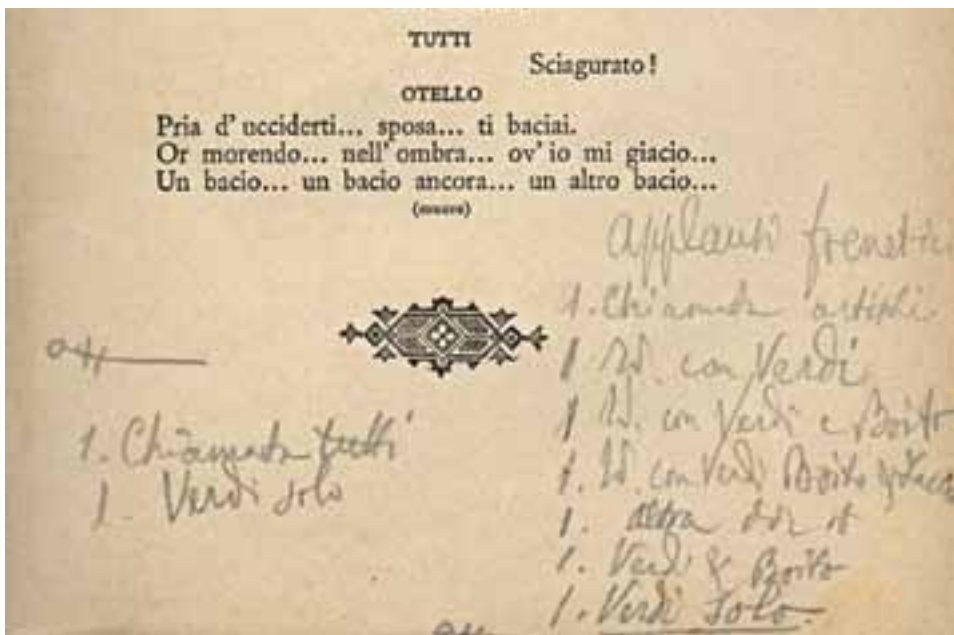 TUTTI
Sciagurato!
OTELLO
Pria d'ucciderti... sposa... ti baciai.
Or morendo... nell'ombra... ov'io mi giacio...
Un bacio... un bacio ancora... un altro bacio...
(muore)
Applausi frenetici
1. Chiamata artisti
1 Id. con Verdi
1 Id. con Verdi e Boito
1. Id. con Verdi Boito
1. altra
1. Verdi & Boito
1. Verdi Solo
1. Chiamata tutti
1 Verdi solo